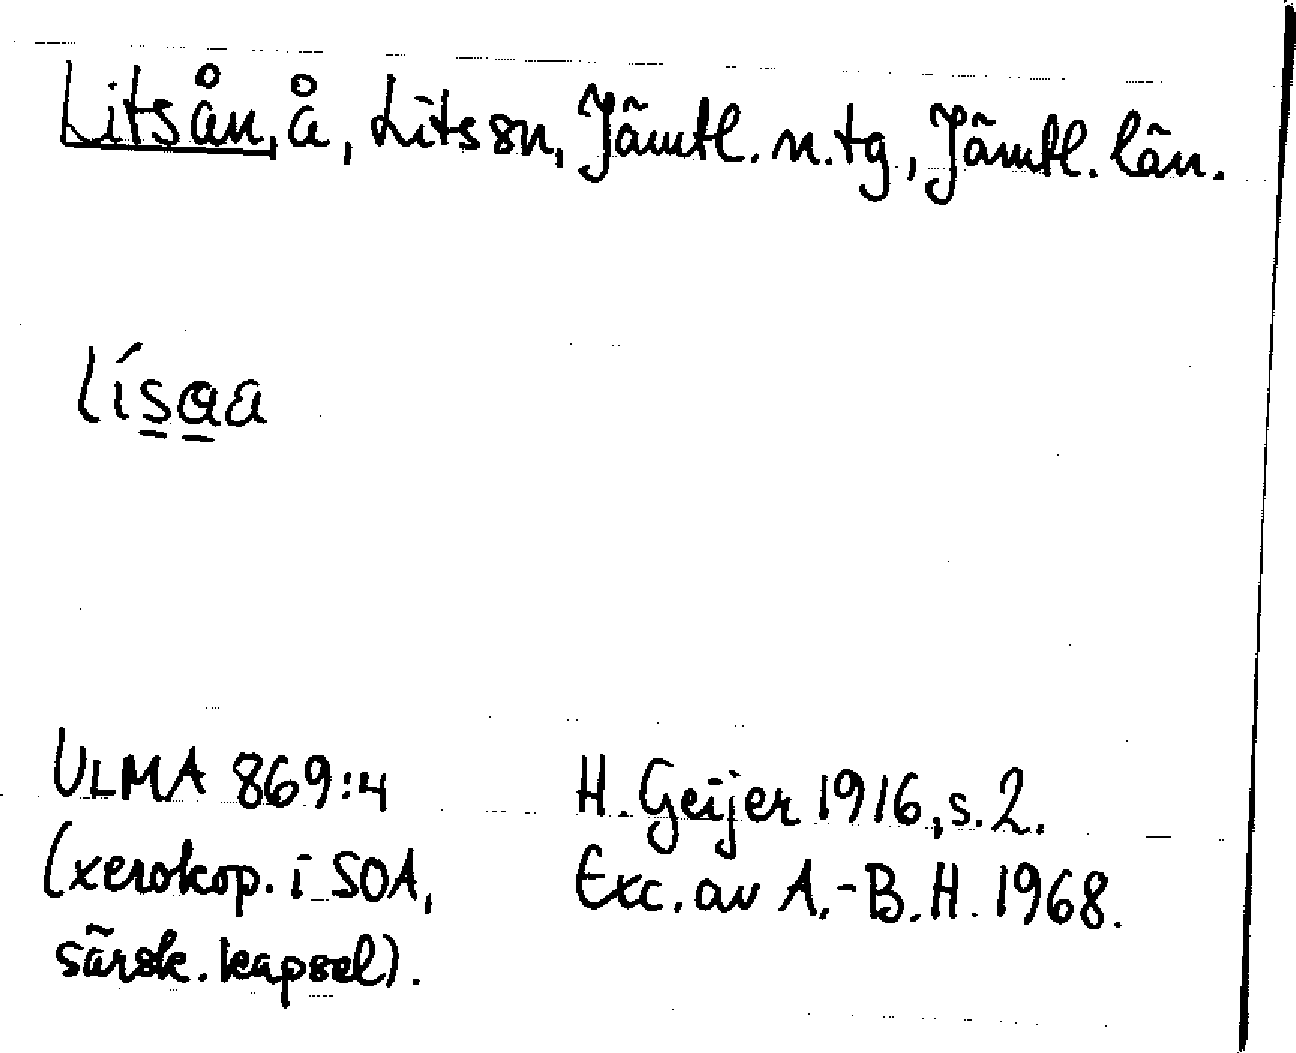 Litsån, å, Lits sn, Jämtl. n. tg, Jämtl. län.
lísaa
ULMA 869:4
(xerokop. i SOA,
särsk. kapsel).
H. Geijer 1916, s. 2.
Exc. av A.-B. H. 1968.